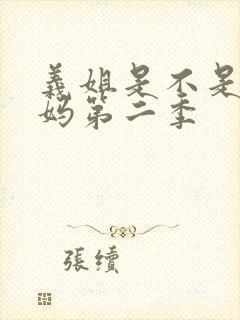 義姐是不是
妈第二季
張續